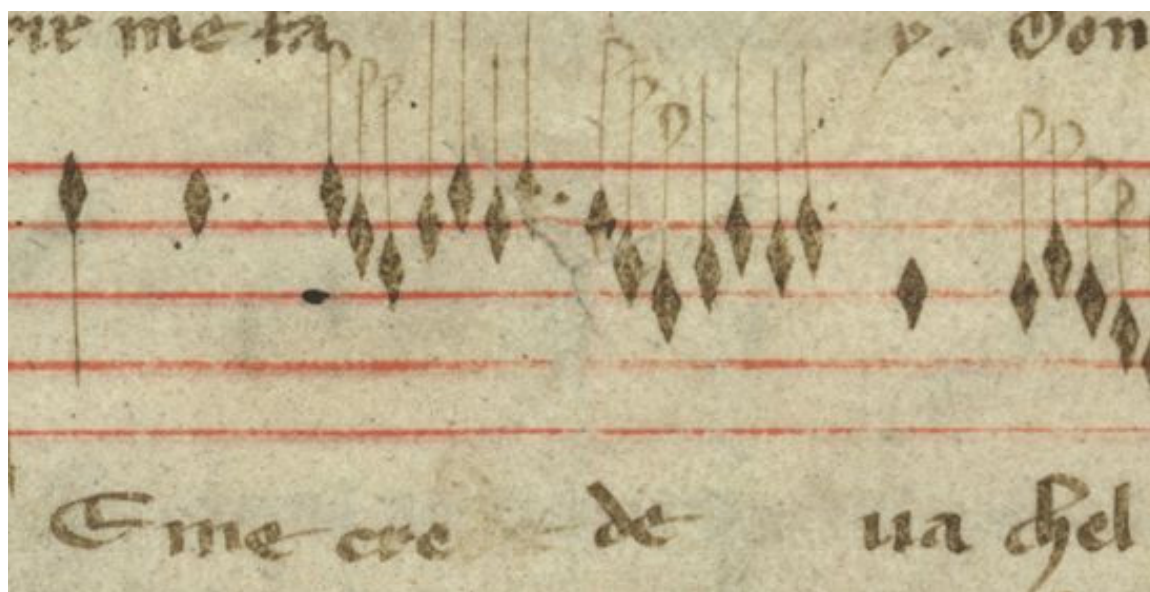 rir me fa y. Don
E me cre de ua chel